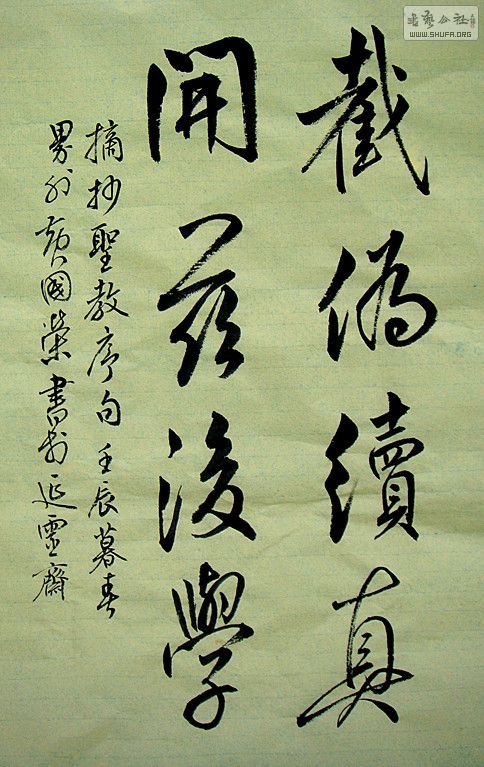 截偽續真
開茲後學
摘抄聖教序句壬辰暮春
界外黄國榮書於延靈齋
書藝公社
WWW.SHUFA.ORG